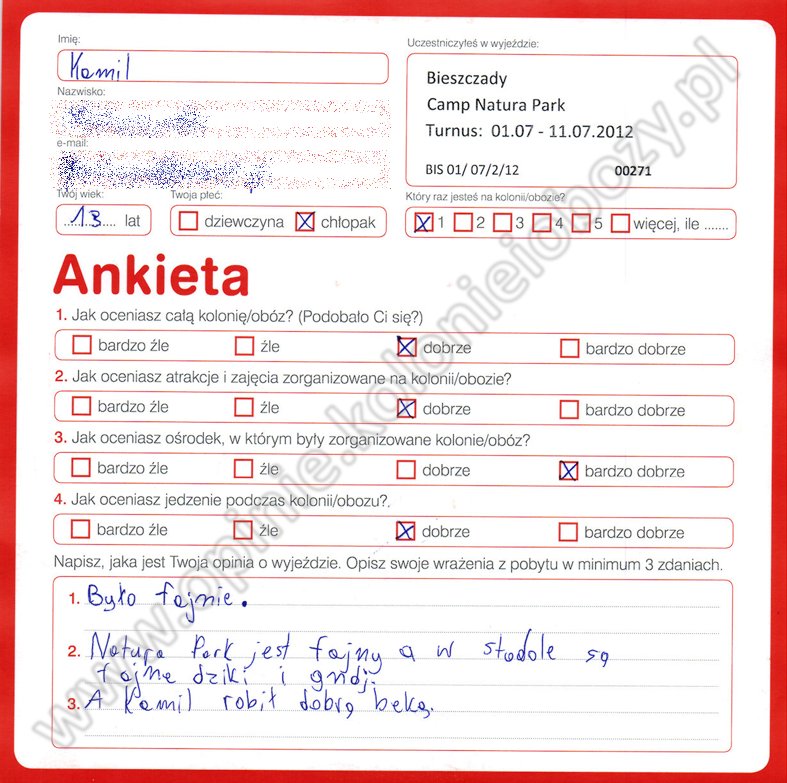 Imię:
Kamil
Nazwisko:
e-mail:
Twój wiek:
13 lat
Twoja płeć:
dziewczyna chłopak
Uczestniczyłeś w wyjeździe:
Bieszczady
Camp Natura Park
Turnus: 01.07 - 11.07.2012
BIS 01/ 07/2/12 00271
Który raz jesteś na kolonii/obozie?
1 2 3 4 5 więcej, ile .......
Ankieta
1. Jak oceniasz całą kolonię/obóz? (Podobało Ci się?)
bardzo źle źle dobrze bardzo dobrze
2. Jak oceniasz atrakcje i zajęcia zorganizowane na kolonii/obozie?
bardzo źle źle dobrze bardzo dobrze
3. Jak oceniasz ośrodek, w którym były zorganizowane kolonie/obóz?
bardzo źle źle dobrze bardzo dobrze
4. Jak oceniasz jedzenie podczas kolonii/obozu?
bardzo źle źle dobrze bardzo dobrze
Napisz, jaka jest Twoja opinia o wyjeździe. Opisz swoje wrażenia z pobytu w minimum 3 zdaniach.
1. Było fajnie.
2. Natura Park jest fajny a w stodole są
fajne dziki i
3. A Kamil robił dobrą beką.
www.opinie.kolonieiobozy.pl